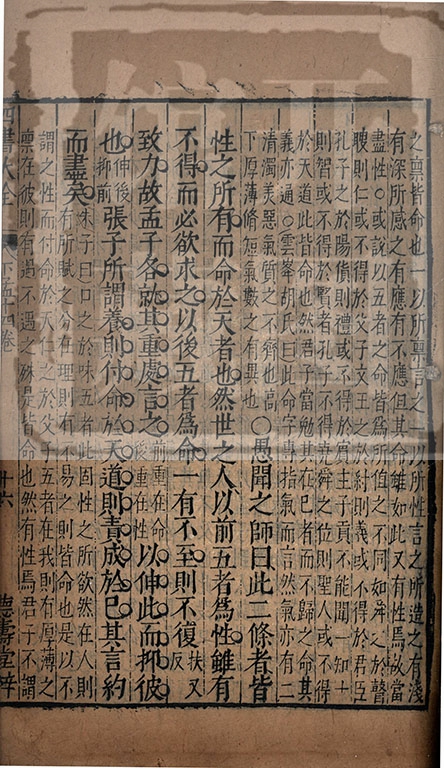 之稟皆命也一以所稟言之一以所性言之所造之有淺
有深所感之有應有不應但其命雖如此又有性焉故當
盡性〇或說以五者之命皆為所值之不同如舜之於瞽
瞍則仁或不得於父子文王之於紂則義或不得於君臣
孔子之於陽貨則禮或不得於賓主子貢不能聞一知十
則智或不得於賢者孔子不得堯舜之位則聖人或不得
於天道此皆命也然君子當勉其在已者而不歸之命其
義亦通〇雲峯胡氏曰此命字專指氣而言然氣亦有二
清濁美惡氣質之不齊也高
下厚薄脩短氣數之有異也
〇愚聞之師曰此二條者皆
性之所有而命於天者也然世之人以前五者為性雖有
不得而必欲求之以後五者為命一有不至則不復扶又反
致力故孟子各就其重處言之前重在命後重在性以伸此而抑彼
也伸後抑前張子所謂養則付命於天道則責成於已其言約
而盡矣朱子曰口之於味五者此固性之所欲然在人則
有所賦之分在理則有不易之則皆命也是以不
謂之性而付命於天仁之於父子五者在我則有厚薄之
稟在彼則有遇不遇之殊是皆命也然有性焉君子不謂
四書大全
卷
十六
德壽堂梓